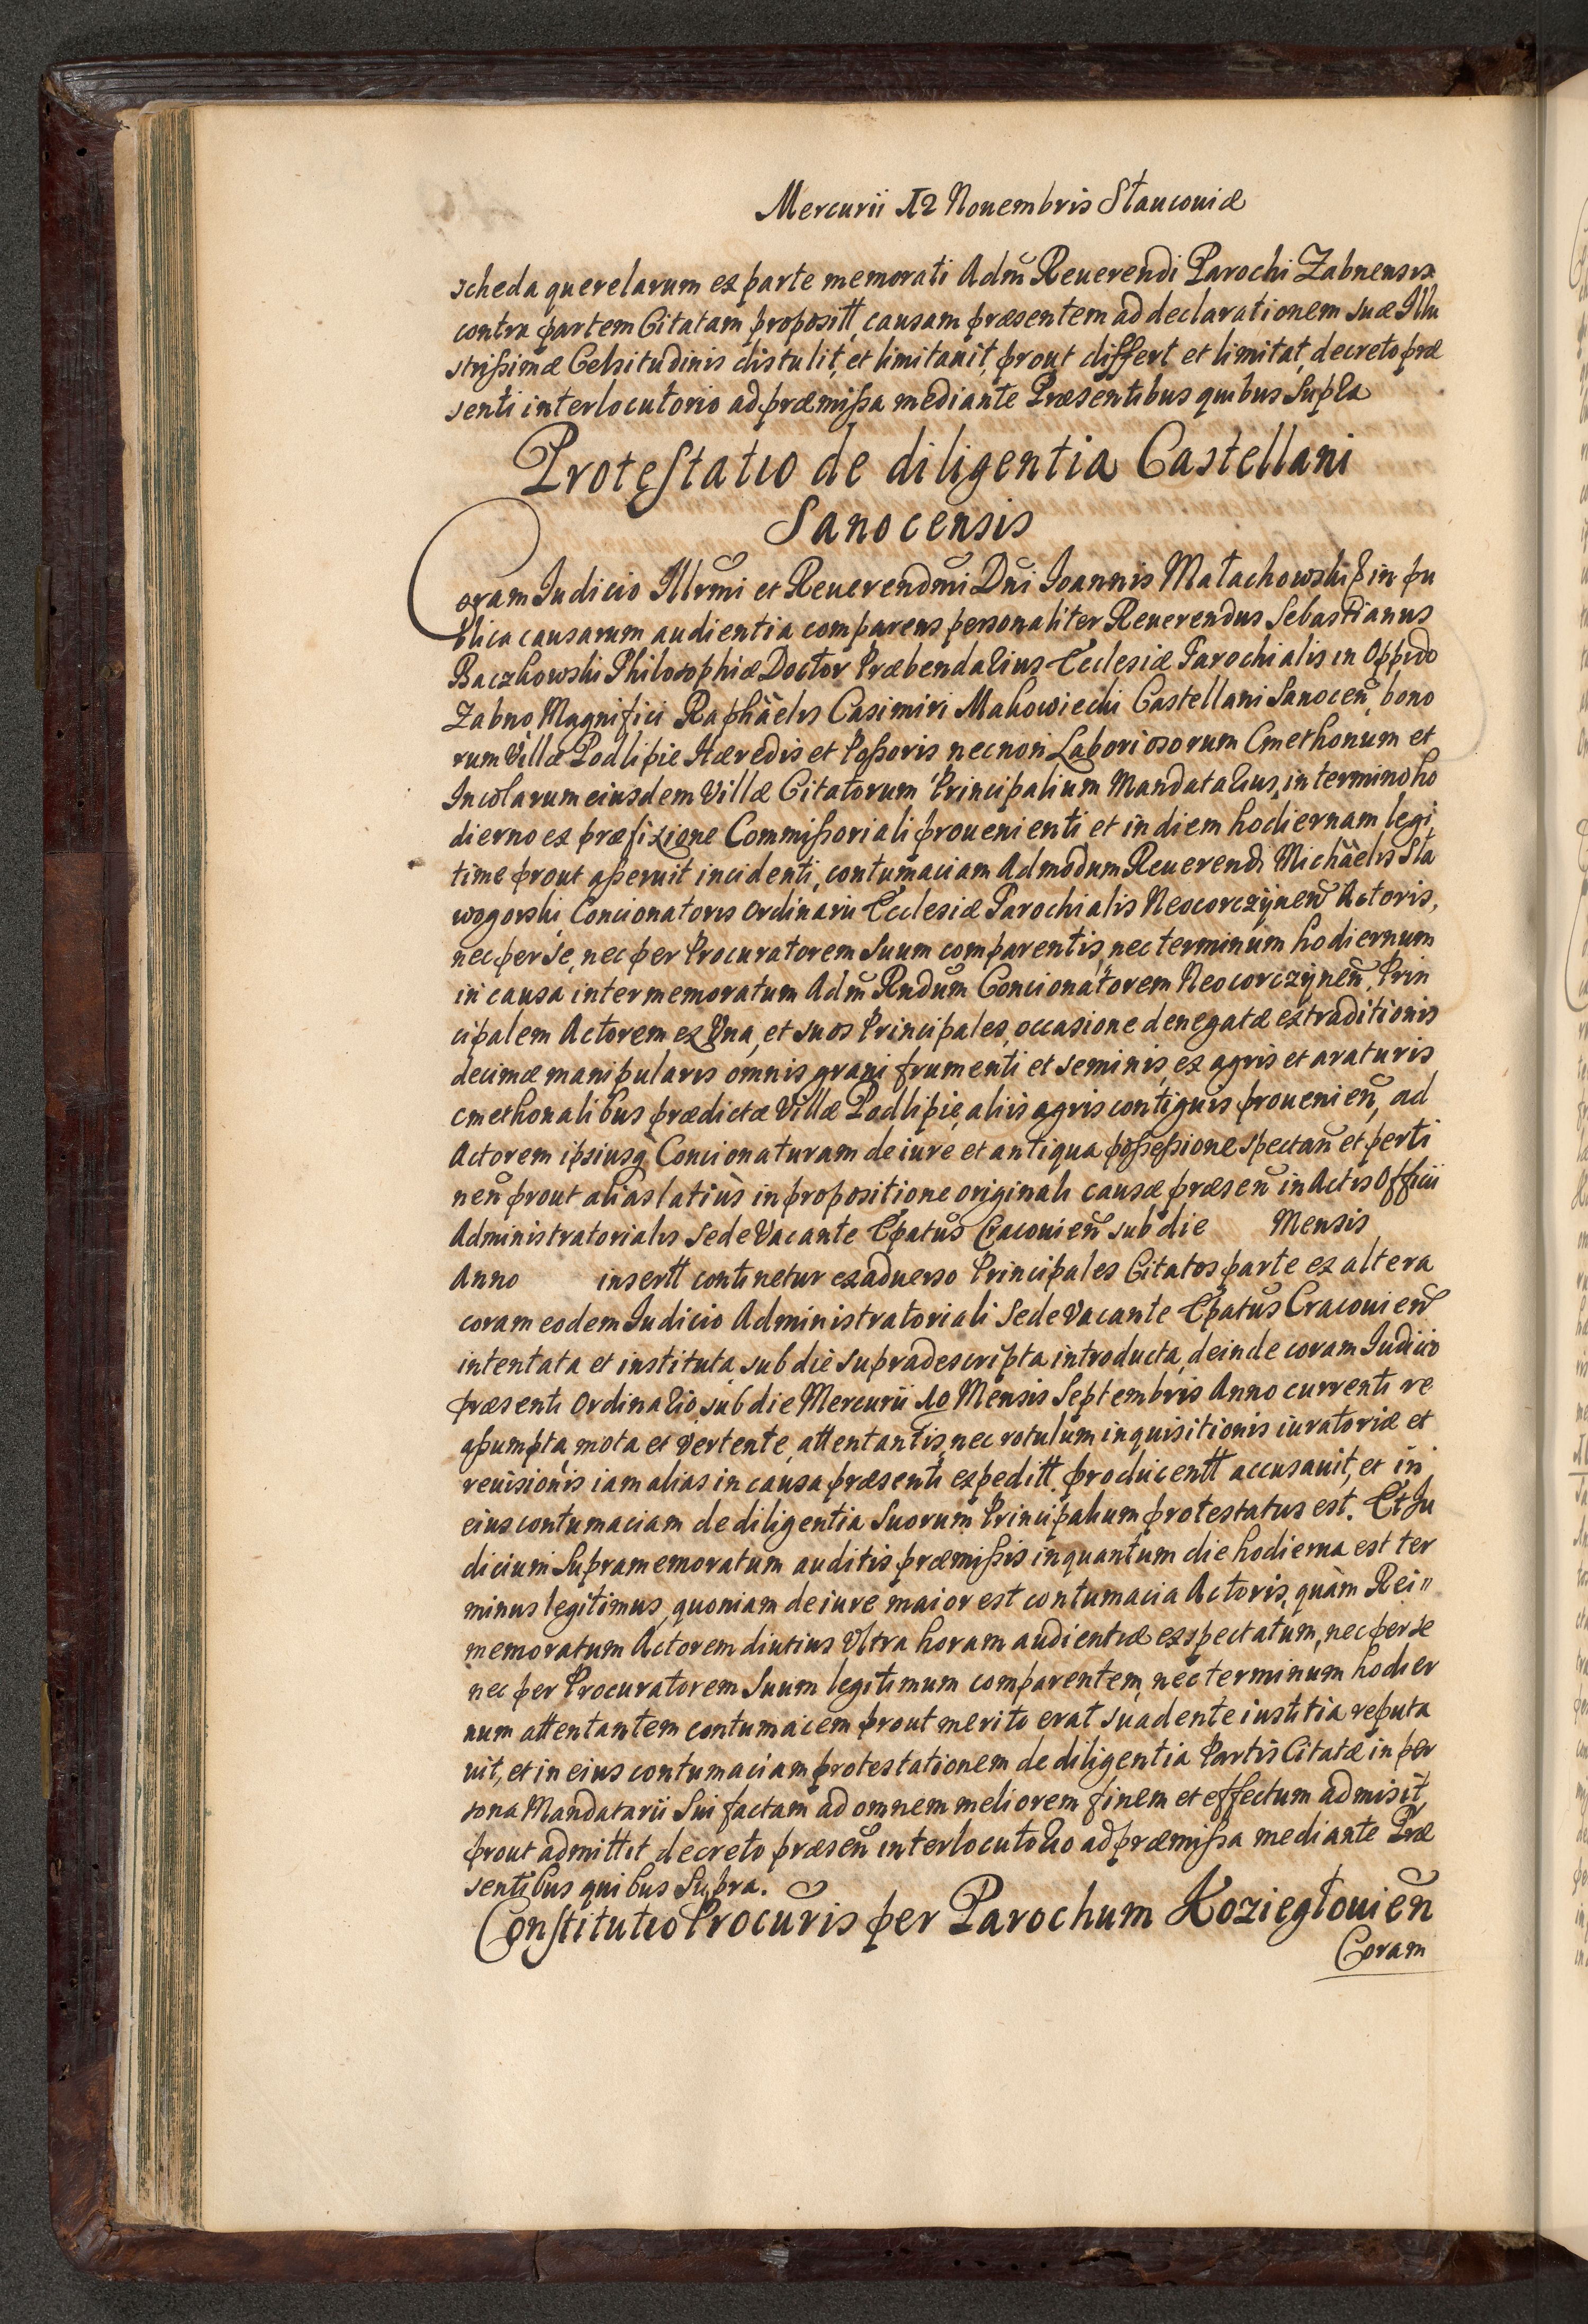 Mercurii 12 Nouembris Stauconiæ
scheda querelarum ex parte memorati Adm̃ Reuerendi Parochi Zabnensis
contra partem Citatam propositt, causam præsentem ad declarationem suæ Illu
strißimæ Celsitudinis distulit, et limitauit, prout differt et limitat, decreto præ
senti interlocutorio ad præmißa mediante Præsentibus quibus supra
Protestatio de diligentia Castellani
Sanocensis
Coram Iudicio Illrmi et Reuerendmi Dni Ioannis Małachowski in pu
blica causarum audientia comparens personaliter Reuerendus Sebastianus
Baczkowski Philosophiæ Doctor Præbendarius Ecclesiæ Parochialis in Oppido
Zabno, Magnifici Raphaëlis Casimiri Makowiecki Castellani Sanocen̄, bono
rum Villæ Podlipie Hæredis et Poßoris necnon Laboriosorum Cmethonum et
Incolarum eiusdem Villæ Citatorum Principalium Mandatarius, in termino ho
dierno ex præfixione Commißoriali prouenienti et in diem hodiernam legi
time prout aßeruit incidenti, contumaciam Admodum Reuerendi Michaëlis Sła
wogorski Concionatoris Ordinarii Ecclesiæ Parochialis Neocorczÿnen̄ Actoris,
nec per se, nec per Procuratorem Suum comparentis, nec terminum hodiernum
in causa inter memoratum Adm̄ Rndum Concionatorem Neocorczÿnen̄, Prin
cipalem Actorem ex Vna, et suos Principales, occasione denegatæ extraditionis
decimæ manipularis omnis grani frumenti et seminis, ex agris et araturis
cmethonalibus prædictæ Villæ Podlipie, aliis agris contiguis prouenien̄, ad
Actorem ipsiusq̃ Concionaturam de iure et antiqua poßeßione spectan̄ et perti
nen̄ prout alias latiùs in propositione originali causæ præsen̄ in Actis Officii
Administratorialis Sede Vacante Epatus Cracouien̄ sub die Mensis
Anno insertt continetur ex aduerso Principales Citatos parte ex altera
coram eodem Iudicio Administratoriali Sede Vacante Epatus Cracouien̄
intentata et instituta, sub die supradescripta introducta, deinde coram Iudicio
præsenti Ordinario, sub die Mercurii 10 Mensis Septembris Anno currenti re
aßumpta, mota et Vertente, attentantis, nec rotulum inquisitionis iuratoriæ et
reuisionis iam alias in causa præsenti expeditt. producentt accusauit, et in
eius contumaciam de diligentia Suorum Principalium protestatus est. Et Iu
dicium Supramemoratum auditis præmißis inquantum die hodierna est ter
minus legitimus, quoniam de iure maior est contumacia Actoris, quàm Rei,,
memoratum Actorem diutius Vltra horam audientiæ exspectatum, nec per se
nec per Procuratorem Suum legitimum comparentem, nec terminum hodier
num attentantem contumacem prout merito erat suadente iustitia reputa
uit, et in eius contumaciam protestationem de diligentia Partis Citatæ in per
sona Mandatarii Sui factam ad omnem meliorem finem et effectum admisit,
prout admittit decreto præsen̄ interlocutorio ad præmißa mediante Præ
sentibus quibus Supra.
Constitutio Procuris per Parochum Koziegłouien̄
Coram